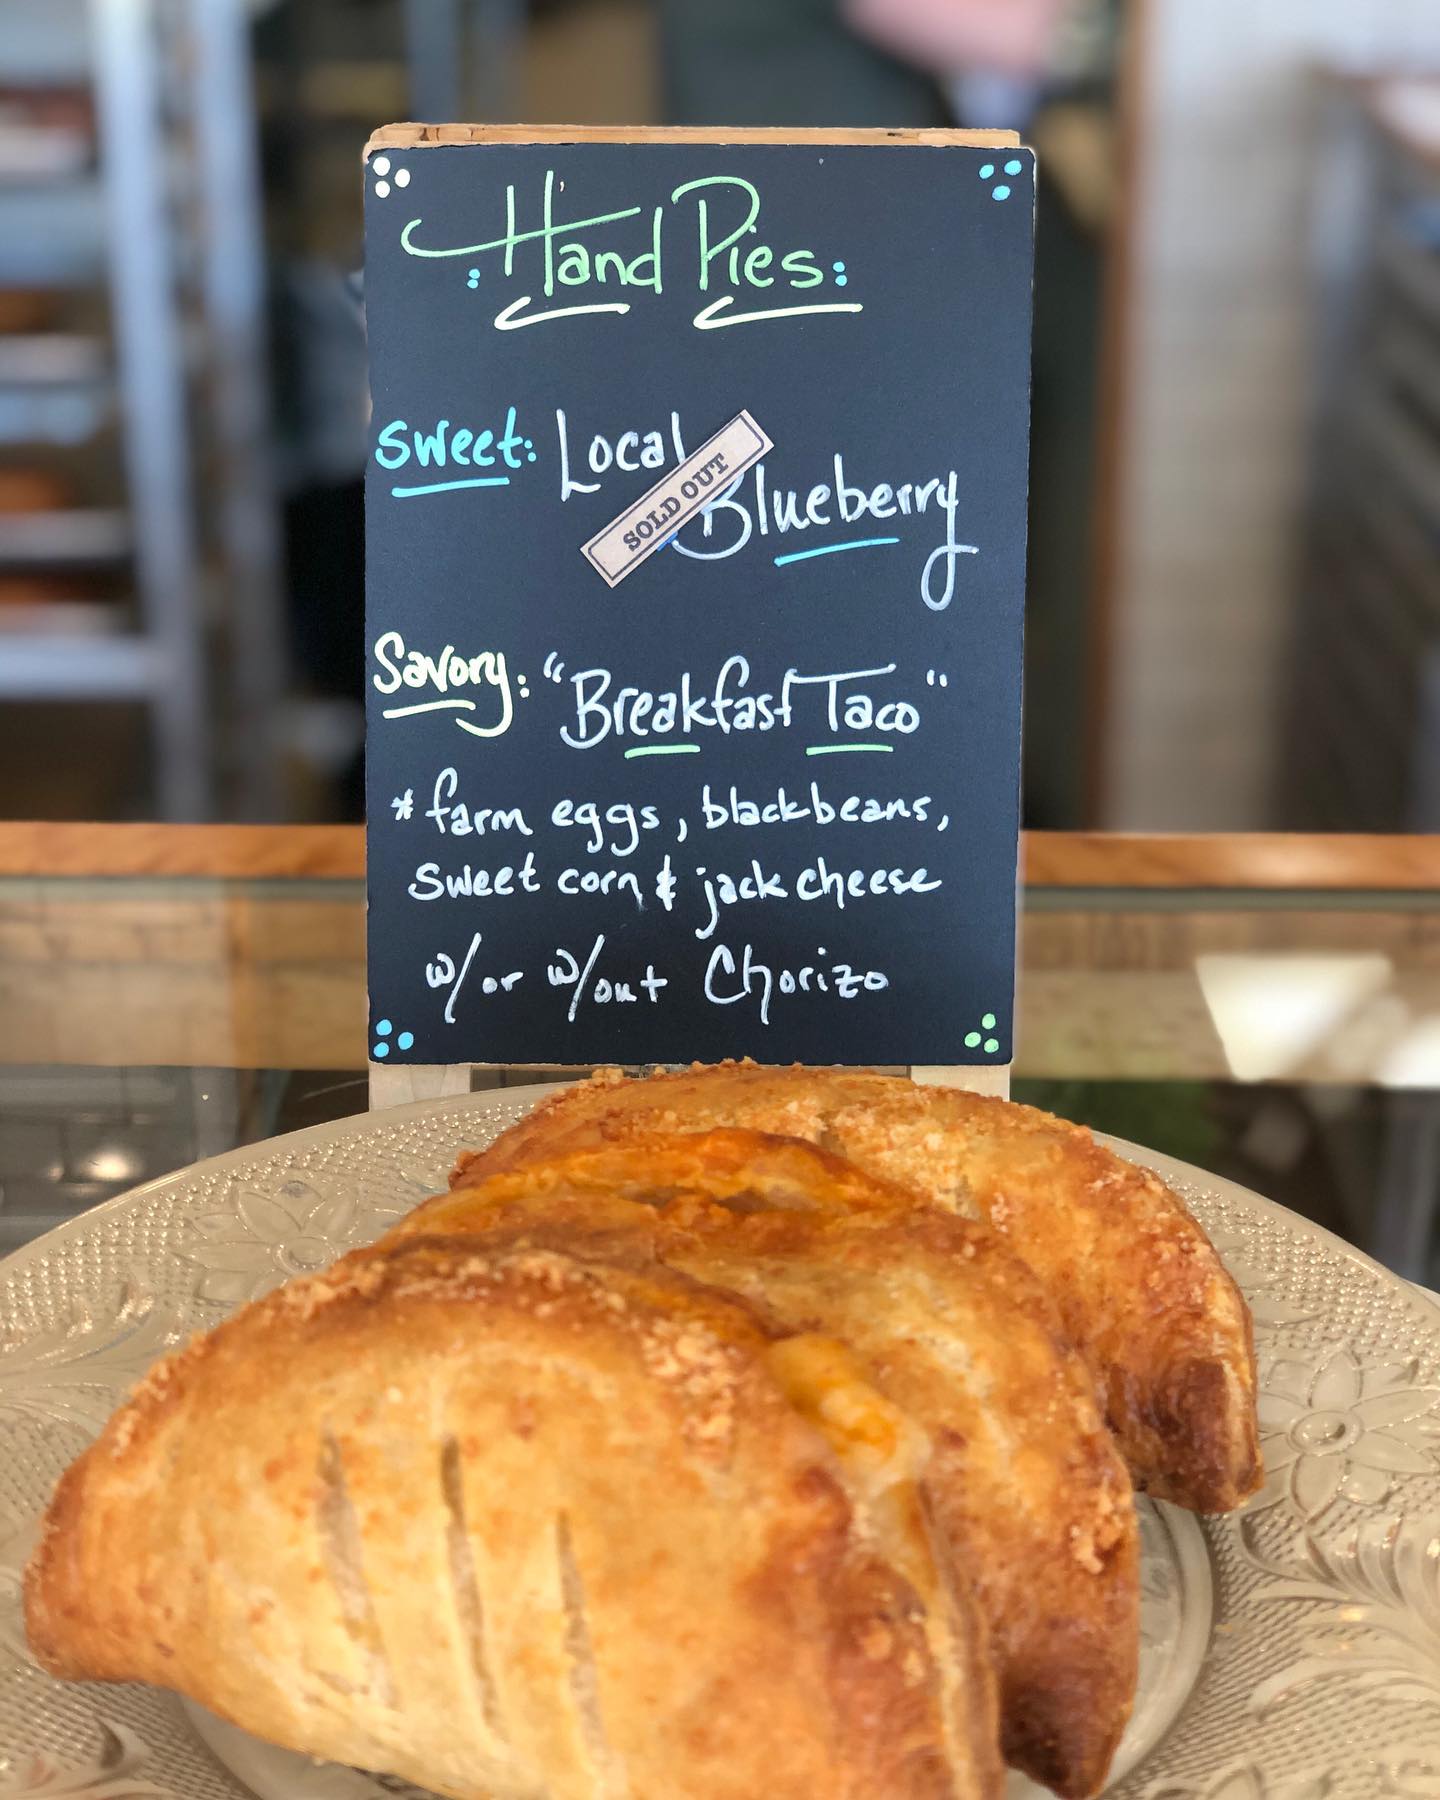 Hand Pies:
Sweet: Local
SOLD OUT
Blueberry
Savory: "Breakfast Taco"
* farm eggs, black beans,
sweet corn & jack cheese
w/or w/out Chorizo